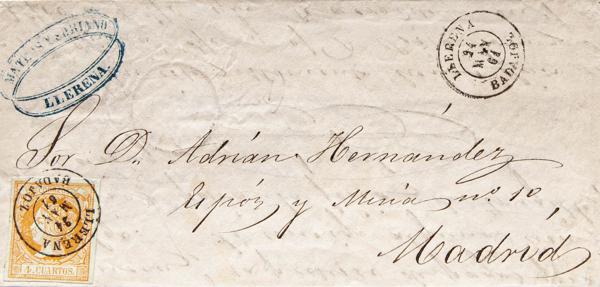 MATEOS Y SORIANO
LLERENA.
LLERENA
24
MAY
61
BADAJOZ
Sor. D. Adrián Hernández
Espóz y Mina nº. 10
Madrid
LLERENA
24
61
BADAJOZ
4 CUARTOS.